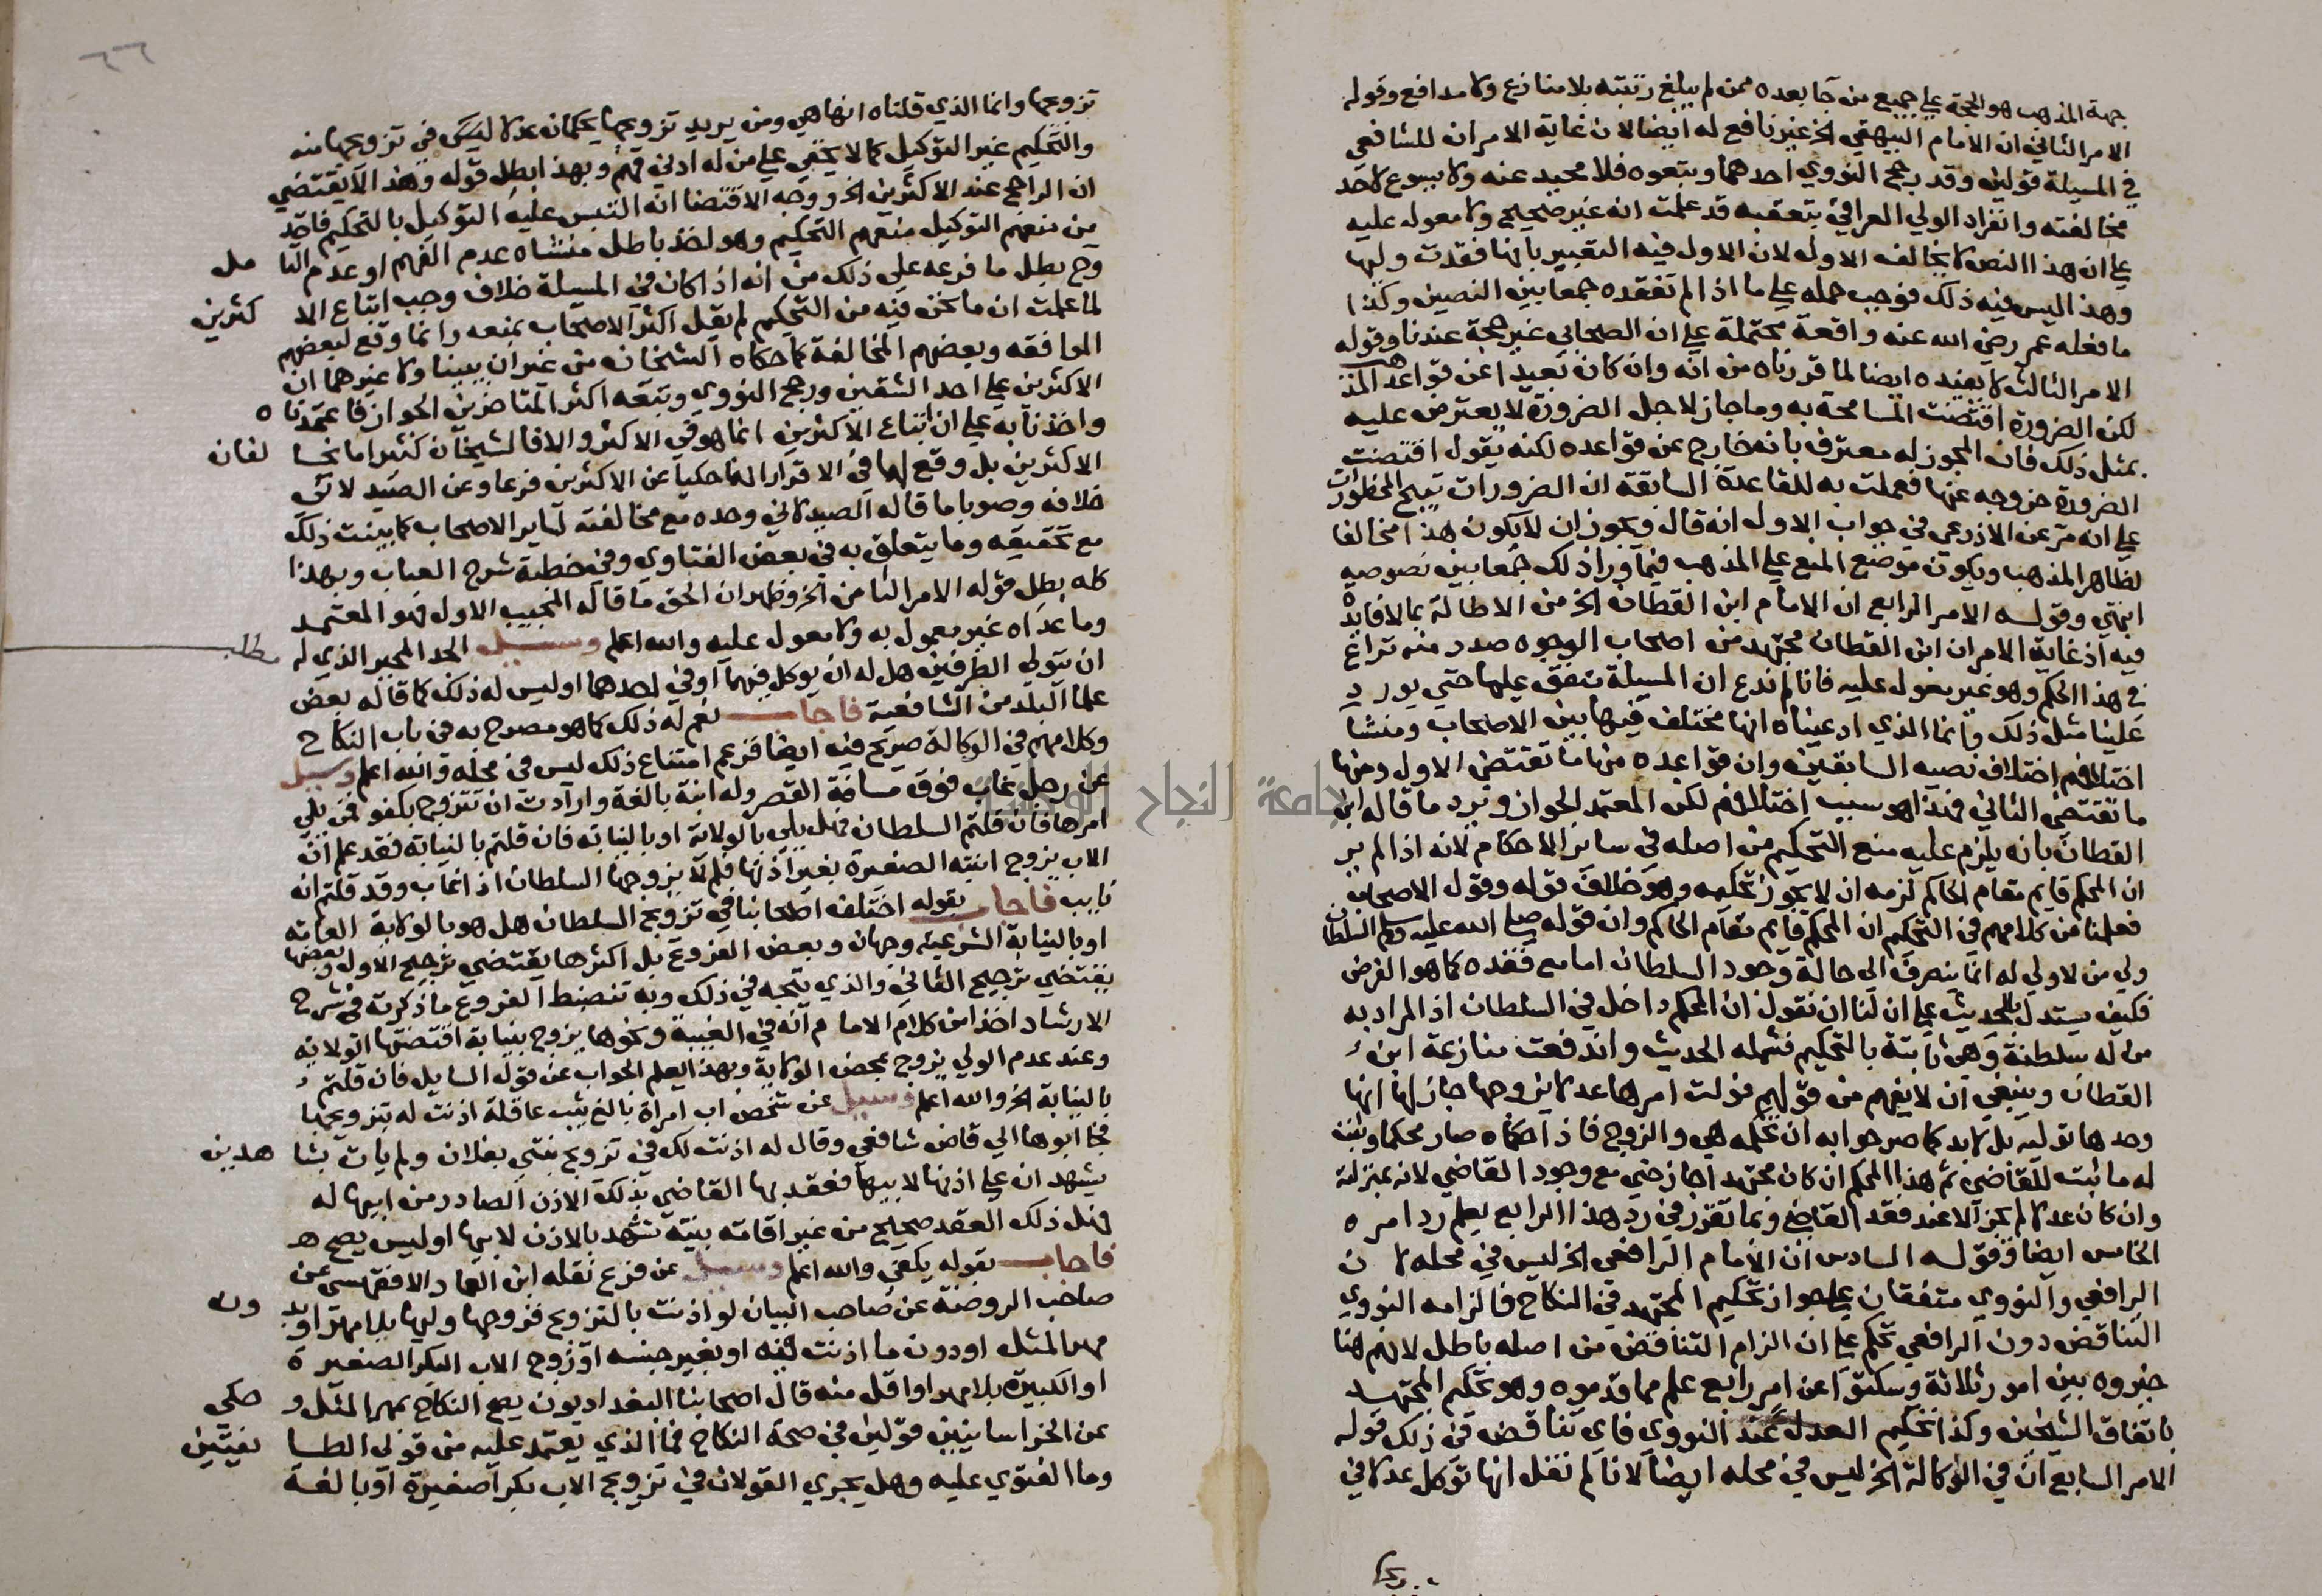 جهة المذهب هو الحجة علي جميع من جا بعده ممن لم يبلغ رتبته بلا منازع ولا مدافع وقوله
الامر الثاني ان الامام البيهقي الخ غير نافع له ايضا لان غاية الامر ان للشافعي
في المسيلة قولين وقد رجح النووي احدهما وتبعوه فلا محيد عنه ولا يسوع لاحد
مخالفته وانفراد الولي العراقي بتعقبه قد علمت انه غير صحيح ولا معول عليه
علي ان هذا النص لا يخالف الاول لان الاول فيه التعبير بانها فقدت وليها
وهذا ليس فيه ذلك فوجب حمله علي ما اذا لم تفقده جمعا بين النصين وكذا
ما فعله عمر رضي الله عنه واقعة محتملة علي ان الصحابي غير حجة عندنا وقوله
الامر الثالث لا يفيده ايضا لما قررناه من انه وان كان بعيدا عن قواعد المذهب
لكن الضرورة اقتضت المسامحة به وما جاز لاجل الضرورة لا يعترض عليه
بمثل ذلك فان المجوز له معترف بانه خارج عن قواعده لكنه يقول اقتضت
الضرورة خروجه عنها فعملت به للقاعدة السابقة ان الضرورات تبيح المحظورات
علي انه مر عن الاذرعي في جواب الاول انه قال ويجوز ان لا يكون هذا مخالفا
لظاهر المذهب ويكون موضع المنع علي المذهب فيما ورا ذلك جمعا بين نصوصه
انتهي وقوله الامر الرابع ان الامام ابن القطان الخ من الاطالة بما لا فايدة
فيه اذ غاية الامر ان ابن القطان مجتهد من اصحاب الوجوه صدر منه نزاع
في هذا الحكم وهو غير معول عليه فانا لم ندع ان المسيلة متفق عليها حتي يورد
علينا مثل ذلك وانما الذي ادعيناه انها مختلف فيها بين الاصحاب ومنشا
اختلافهم اختلاف نصيه السابقين وان قواعده منها ما تقتضي الاول ومنها
ما تقتضي الثاني فهذا هو سبب اختلافهم لكن المعتمد الجواز ويرد ما قاله ابن
القطان بانه يلزم عليه منع التحكيم من اصله في ساير الاحكام لانه اذا لم ير
ان المحكم قايم مقام الحاكم لزمه ان لا يجوز تحكيمه وهو خلاف قوله وقول الاصحاب
فعلمنا من كلامهم في التحكيم ان المحكم قايم مقام الحاكم وان قوله صلي الله عليه وسلم السلطان
ولي من لا ولي له انما ينصرف الي حالة وجود السلطان اما مع فقده كما هو الفرض
فكيف يستدل بالحديث علي ان لنا ان نقول ان المحكم داخل في السلطان اذ المراد به
من له سلطنة وهي ثابتة بالتحكيم فشمله الحديث واندفعت منازعة ابن
القطان وينبغي ان لا يفهم من قولهم فولت امرها عدلا يزوجها جاز لها انها
وحدها توليه بل لا بد كما صرحوا به ان تحكمه هي والزوج فاذا حكماه صار محكما وثبت
له ما ثبت للقاضي ثم هذا المحكم ان كان مجتهدا جاز حتي مع وجود القاضي لانه بمنزلته
وان كان عدلا لم يجز الا عند فقد القاضي وبما تقرر في رد هذا الرابع يعلم رد امره
الخامس ايضا وقوله السادس ان الامام الرافعي الخ ليس في محله لان
الرافعي والنووي متفقان علي جواز تحكيم المجتهد في النكاح فالزامه النووي
التناقض دون الرافعي تحكم علي ان الزام التناقض من اصله باطل لانهم هنا
خيروه بين امور ثلاثة وسكتوا عن امر رابع علم مما قدموه وهو تحكيم المجتهد
باتفاق الشيخين وكذا تحكيم العدل عند النووي فاي تناقض في ذلك قوله
الامر السابع ان في الوكالة الخ ليس في محله ايضا لانا لم نقل انها توكل عدلا في
تزويجها
٦٦
تزويجها وانما الذي قلناه انها هي ومن يريد تزويجها يحكمان عدلا ليس في تزويجها منه
والتحكيم غير التوكيل كما لا يخفي علي من له ادني فهم وبهذا بطل قوله وهذا لا يقتضي
ان الراجح عند الاكثرين الخ ووجه الاقتضا انه التبس عليه التوكيل بالتحكيم فاخذ
من منعهم التوكيل منعهم التحكيم وهو اخذ باطل منشاه عدم الفهم او عدم التا مل
وح بطل ما فرعه علي ذلك من انه اذا كان في المسيلة خلاف وجب اتباع الا كثرين
لما علمت ان ما نحن فيه من التحكيم لم يقل اكثر الاصحاب بمنعه وانما وقع لبعضهم
الموافقه وبعضهم المخالفة كما حكاه الشيخان من غير ان يبينا ولا غيرهما ان
الاكثرين علي احد الشقين ورجح النووي وتبعه اكثر المتاخرين الجواز فاعتمدناه
واخذنا به علي ان اتباع الاكثرين انما هو في الاكثر والا فالشيخان كثيرا ما يخا لفان
الاكثرين بل وقع لهما في الاقرار انهما حكيا عن الاكثرين فرعا وعن الصيد لاني
خلافه وصوبا ما قاله الصيدلاني وحده مع مخالفته لساير الاصحاب كما بينت ذلك
مع تحقيقه وما يتعلق به في بعض الفتاوي وفي خطبة شرح العباب وبهذا
كله بطل قوله الامر الثامن الخ وظهر ان الحق ما قاله المجيب الاول فهو المعتمد
وما عداه غير معمول به ولا معول عليه والله اعلم وسيل الجد المجبر الذي له مطلب
ان يتولي الطرفين هل له ان يوكل فيهما او في احدهما او ليس له ذلك كما قاله بعض
علما البلد من الشافعية فاجاب نعم له ذلك كما هو مصرح به في باب النكاح
وكلامهم في الوكالة صريح فيه ايضا فزعم امتناع ذلك ليس في محله والله اعلم وسيل
عن رجل غاب فوق مسافة القصر وله ابنة بالغة وارادت ان تتزوج بكفو فمن يلي
امرها فان قلتم السلطان فهل يلي بالولاية او بالنيابه فان قلتم بالنيابة فقد علم ان
الاب يزوج ابنته الصغيرة بغير اذنها فلم لا يزوجها السلطان اذا غاب وقد قلتم انه
نايب فاجاب بقوله اختلف اصحابنا في تزويج السلطان هل هو بالولاية العامه
او بالنيابة الشرعيه وجهان وبعض الفروع بل اكثرها يقتضي ترجيح الاول وبعضها
يقتضي ترجيح الثاني والذي يتجه في ذلك وبه تنضبط الفروع ما ذكرته في شرح
الارشاد اخذا من كلام الامام انه في الغيبة ونحوها يزوج بنيابة اقتضتها الولايه
وعند عدم الولي يزوج بمحض الولاية وبهذا يعلم الجواب عن قول السايل فان قلتم
بالنيابة الخ والله اعلم وسيل عن شخص اب امراة بالغ ثيب عاقلة اذنت له بتزويجها
فجا ابوها الي قاض شافعي وقال له اذنت لك في تزويج بنتي بفلان ولم يات بشا هدين
يشهدان علي اذنها لابيها فعقد بها القاضي بذلك الاذن الصادر من ابيها له
فهل ذلك العقد صحيح من غير اقامته بينة تشهد بالاذن لابيها او ليس يصح
فاجاب بقوله يكفي والله اعلم وسيل عن فرع نقله ابن العماد الاقفهسي عن
صاحب الروضة عن صاحب البيان لو اذنت بالتزويج فزوجها وليها بلا مهر او بد ون
مهر المثل او دون ما اذنت فيه او بغير جنسه او زوج الاب البكر الصغيرة
او الكبيرة بلا مهر او اقل منه قال اصحابنا البغداديون يصح النكاح بمهر المثل و حكي
عن الخراسانيين قولين في صحة النكاح فما الذي يعتمد عليه من قولي الطا يفتين
وما الفتوي عليه وهل يجري القولان في تزويج الاب بكرا صغيرة او بالغة
جامعة النجاح الوطنية